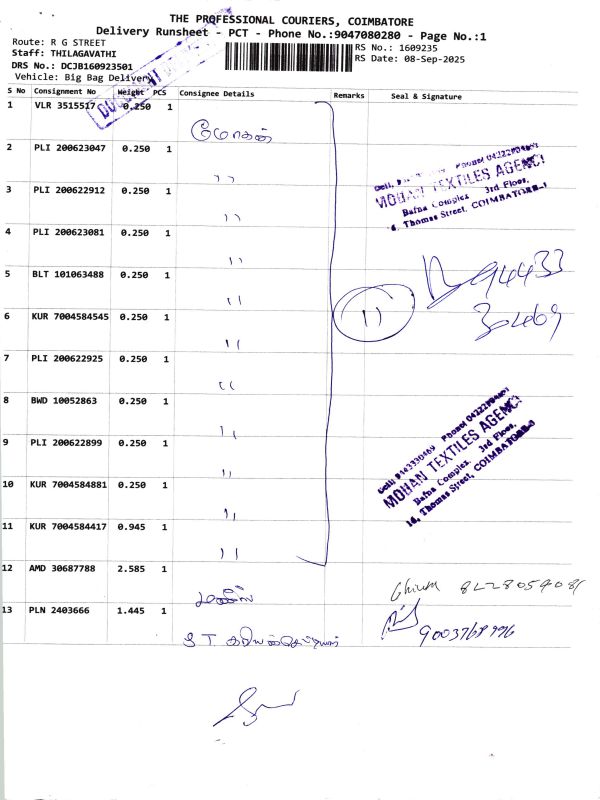 THE PROFESSIONAL COURIERS, COIMBATORE
Delivery Runsheet - PCT - Phone No.:9047080280 - Page No.:1
Route: R G STREET
RS No.: 1609235
Staff: THILAGAVATHI
RS Date: 08-Sep-2025
DRS No.: DCJB160923501
Vehicle: Big Bag Delivery
S No Consignment No Weight PCS Consignee Details Remarks Seal & Signature
1 VLR 3515517 0.250 1
மோகன்
2 PLI 200623047 0.250 1
''
3 PLI 200622912 0.250 1
''
MOHAN TEXTILES AGENCY
Bafna Complex 3rd Floor,
Thomas Street, COIMBATORE-1
4 PLI 200623081 0.250 1
''
5 BLT 101063488 0.250 1
''
94433
30469
6 KUR 7004584545 0.250 1
11
''
7 PLI 200622925 0.250 1
''
8 BWD 10052863 0.250 1
''
9 PLI 200622899 0.250 1
''
MOHAN TEXTILES AGENCY
Bafna Complex, 3rd Floor,
16, Thomas Street, COIMBATORE-1
10 KUR 7004584881 0.250 1
''
11 KUR 7004584417 0.945 1
''
12 AMD 30687788 2.585 1
13 PLN 2403666 1.445 1
S T